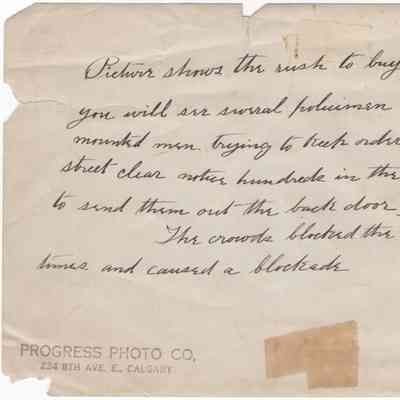 Picture shows the rush to buy
you will see sevral policimen
mounted men trying to keep order
street clear notice hundreds in the
to send them out the back door
The crowds blocked the
times and caused a blockade
PROGRESS PHOTO CO,
224 8TH AVE. E., CALGARY